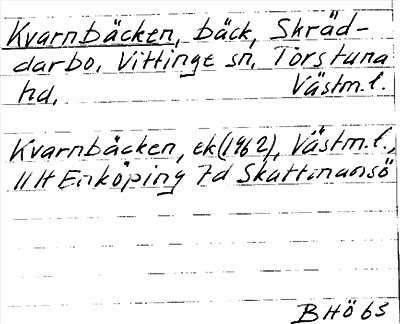 Kvarnbäcken, bäck, Skräd-
darbo, Vittinge sn, Torstuna
hd, Västm.l.
Kvarnbäcken, ek(1962), Västm.l.,
11H Enköping 7d Skattmansö
BHÖ 63